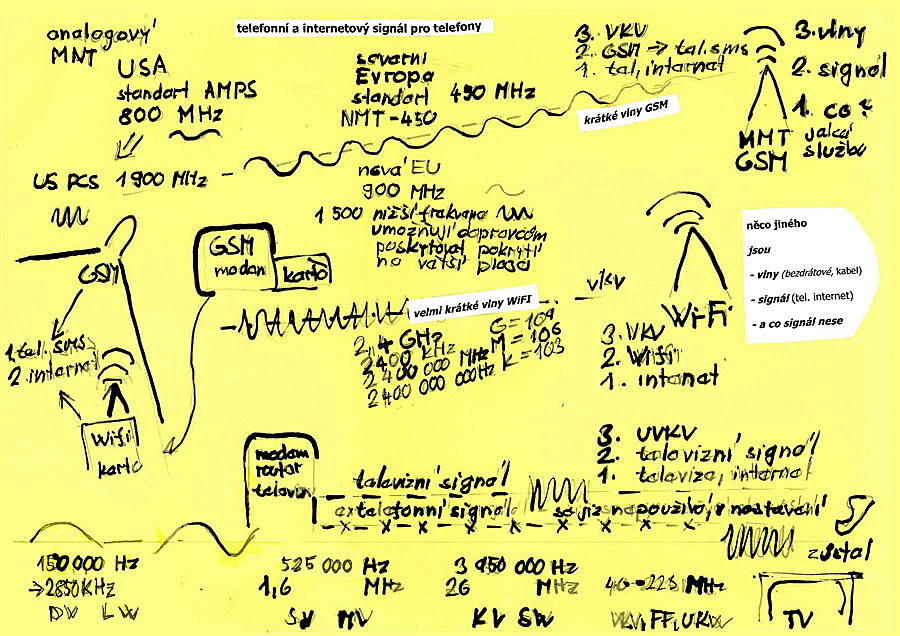 telefonní a internetový signál pro telefony
analogový
MNT
USA
standart AMPS
800 MHz
US PCS 1900 MHz
severní
Evropa
standart 450 MHz
NMT-450
3. VKV
2. GSM → tel. sms
1. tel, internet
krátké vlny GSM
3. vlny
2. signál
1. co ?
jaká
služba
MMT
GSM
nová EU
900 MHz
1 500 nižší frekvence
umožnují dopravcům
poskytovat pokrytí
na větší ploše
GSM
GSM
modem
karta
1. tel, sms
2. internet
Wifi
karta
velmi krátké vlny WiFI
2,4 GHz
2400 KHz
2 400 000 MHz
2400 000 000Hz
G = 109
M = 106
K = 103
vkv
WiFi
3. VKV
2. Wifi
1. intenet
něco jiného
jsou
- vlny (bezdrátové, kabel)
- signál (tel. internet)
- a co signál nese
modem
router
televize
3. UVKV
2. televizní signál
1. televize, internet
televizní signál
telefonní signál
se již nepoužívá, v nastavení
zůstal
TV
150 000 Hz
→2850KHz
DV LW
525 000 Hz
1,6 MHz
SV MV
3 950 000 Hz
26 MHz
KV SW
MHz